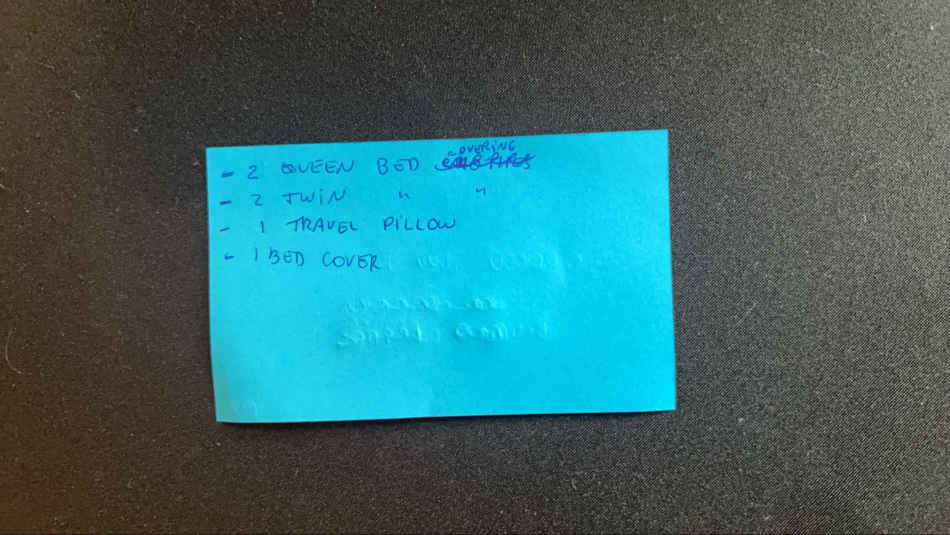 - 2 QUEEN BED COVERING
- 2 TWIN " "
- 1 TRAVEL PILLOW
- 1 BED COVER